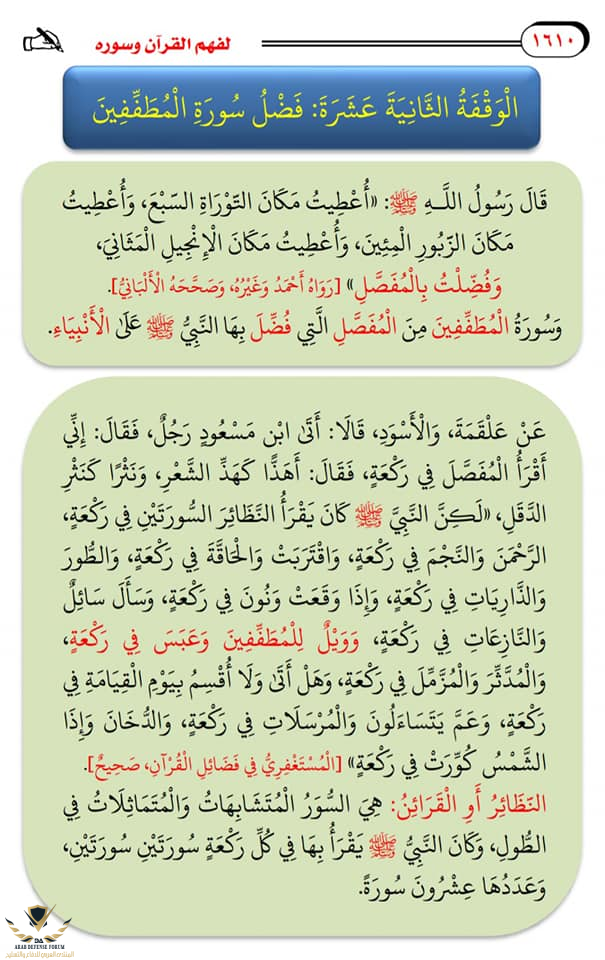 ١٦١٠
لفهم القرآن وسوره
الْوَقْفَةُ الثَّانِيَةَ عَشَرَةَ: فَضْلُ سُورَةِ الْمُطَفِّفِينَ
قَالَ رَسُولُ اللَّهِ ﷺ: «أُعْطِيتُ مَكَانَ التَّوْرَاةِ السَّبْعَ، وَأُعْطِيتُ
مَكَانَ الزَّبُورِ الْمِئِينَ، وَأُعْطِيتُ مَكَانَ الْإِنْجِيلِ الْمَثَانِيَ،
وَفُضِّلْتُ بِالْمُفَصَّلِ» [رَوَاهُ أَحْمَدُ وَغَيْرُهُ، وَصَحَّحَهُ الْأَلْبَانِيُّ].
وَسُورَةُ الْمُطَفِّفِينَ مِنَ الْمُفَصَّلِ الَّتِي فُضِّلَ بِهَا النَّبِيُّ ﷺ عَلَى الْأَنْبِيَاءِ.
عَنْ عَلْقَمَةَ، وَالْأَسْوَدِ، قَالَا: أَتَى ابْن مَسْعُودٍ رَجُلٌ، فَقَالَ: إِنِّي
أَقْرَأُ الْمُفَصَّلَ فِي رَكْعَةٍ، فَقَالَ: أَهَذًّا كَهَذِّ الشَّعْرِ، وَنَثْرًا كَنَثْرِ
الدَّقَلِ، «لَكِنَّ النَّبِيَّ ﷺ كَانَ يَقْرَأُ النَّظَائِرَ السُّورَتَيْنِ فِي رَكْعَةٍ،
الرَّحْمَنَ وَالنَّجْمَ فِي رَكْعَةٍ، وَاقْتَرَبَتْ وَالْحَاقَّةَ فِي رَكْعَةٍ، وَالطُّورَ
وَالذَّارِيَاتِ فِي رَكْعَةٍ، وَإِذَا وَقَعَتْ وَنُونَ فِي رَكْعَةٍ، وَسَأَلَ سَائِلٌ
وَالنَّازِعَاتِ فِي رَكْعَةٍ، وَوَيْلٌ لِلْمُطَفِّفِينَ وَعَبَسَ فِي رَكْعَةٍ،
وَالْمُدَّثِّرَ وَالْمُزَّمِّلَ فِي رَكْعَةٍ، وَهَلْ أَتَى وَلَا أُقْسِمُ بِيَوْمِ الْقِيَامَةِ فِي
رَكْعَةٍ، وَعَمَّ يَتَسَاءَلُونَ وَالْمُرْسَلَاتِ فِي رَكْعَةٍ، وَالدُّخَانَ وَإِذَا
الشَّمْسُ كُوِّرَتْ فِي رَكْعَةٍ» [الْمُسْتَغْفِرِيُّ فِي فَضَائِلِ الْقُرْآنِ، صَحِيحٌ].
النَّظَائِرُ أَوِ الْقَرَائِنُ: هِيَ السُّوَرُ الْمُتَشَابِهَاتُ وَالْمُتَمَاثِلَاتُ فِي
الطُّولِ، وَكَانَ النَّبِيُّ ﷺ يَقْرَأُ بِهَا فِي كُلِّ رَكْعَةٍ سُورَتَيْنِ سُورَتَيْنِ،
وَعَدَدُهَا عِشْرُونَ سُورَةً.
DA
ARAB DEFENSE FORUM
المنتدى العربي للدفاع والتسليح